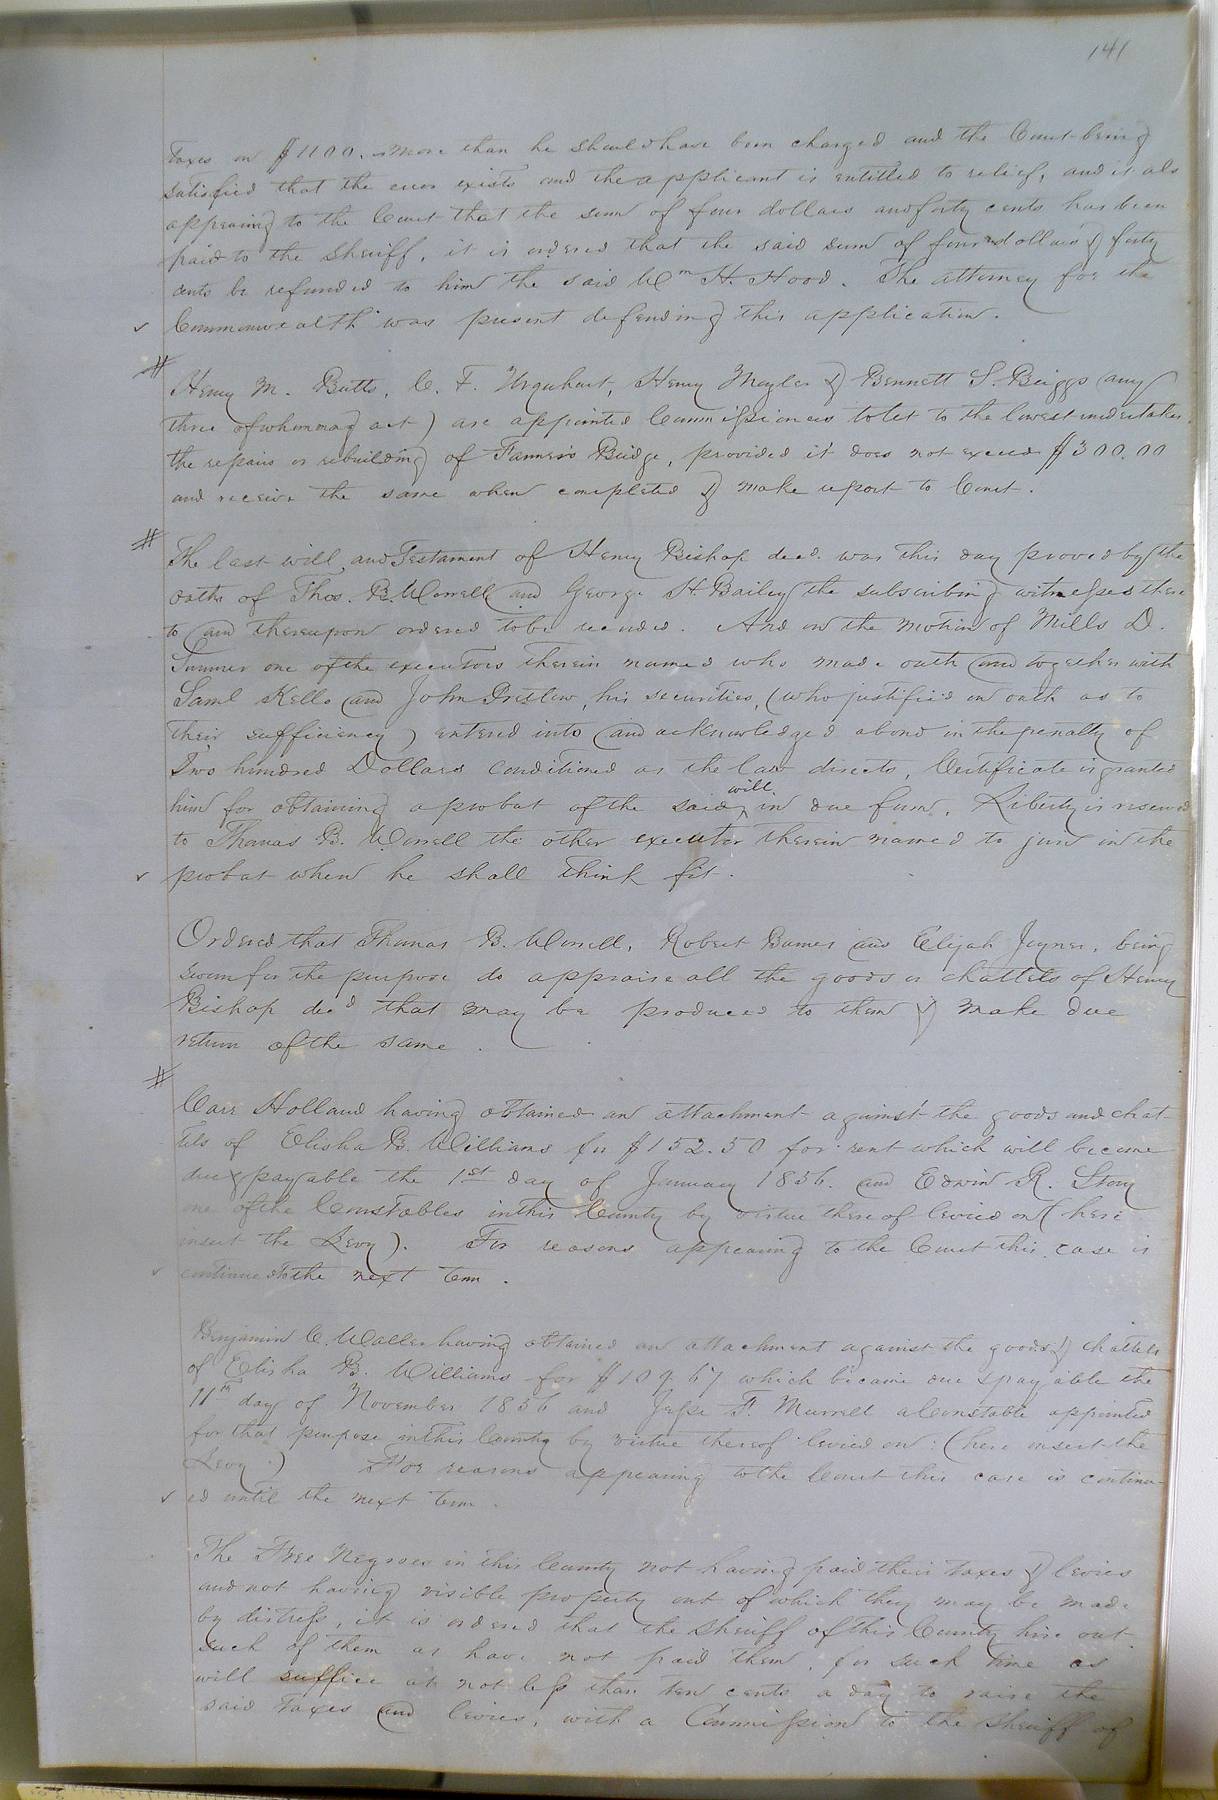 141
taxes on $1100. more than he should have been charged and the Court being
satisfied that the error exists and the applicant is entitled to relief, and it also
appearing to the Court that the sum of four dollars and forty cents has been
paid to the Sheriff, it is ordered that the said sum of four dollars & forty
cents be refunded to him the said Wm H. Hood. The attorney for the
Commonwealth was present defending this application.
Henry M. Butts, C. F. Urquhart, Henry Moyler & Bennett S. Briggs (any
three of whom may act) are appointed Commissioners to let to the lowest undertaker
the repairs or rebuilding of Farmers Bridge, provided it does not exceed $300.00
and receive the same when completed & make report to Court.
The last will and Testament of Henry Bishop decd. was this day proved by the
oaths of Thos. B. Worrell and George H. Bailey the subscribing witnesses there
to and thereupon ordered to be recorded. And on the motion of Mills D.
Sumner one of the executors therein named who made oath and together with
Saml Kello and John Pretlow, his securities, (who justified on oath as to
their sufficiency) entered into and acknowledged a bond in the penalty of
Two hundred Dollars conditioned as the law directs, Certificate is granted
him for obtaining a probat of the said will in due form. Liberty is reserved
to Thomas B. Worrell the other executor therein named to join in the
probat when he shall think fit.
Ordered that Thomas B. Worrell, Robert Barnes and Elijah Joyner, being
sworn for the purpose do appraise all the goods & chattels of Henry
Bishop decd that may be produced to them & make due
return of the same.
Carr Holland having obtained an attachment against the goods and chat-
tels of Elisha B. Williams for $152.50 for rent which will become
due & payable the 1st day of January 1856. and Edwin R. Story
one of the Constables in this County by virtue thereof levied on (here
insert the Levy). For reasons appearing to the Court this case is
continued to the next term.
Benjamin C. Waller having obtained an attachment against the goods & chattels
of Elisha B. Williams for $109.67 which became due & payable the
11th day of November 1856 and Jesse F. Murrell a Constable appointed
for that purpose in this County by virtue thereof levied on: (here insert the
Levy.) For reasons appearing to the Court this case is continu-
ed until the next term.
The Free Negroes in this County not having paid their taxes & levies
and not having visible property out of which they may be made
by distress, it is ordered that the Sheriff of this County hire out
such of them as have not paid them, for such time as
will suffice at not less than ten cents a day to raise the
said taxes and levies, with a Commission to the Sheriff of